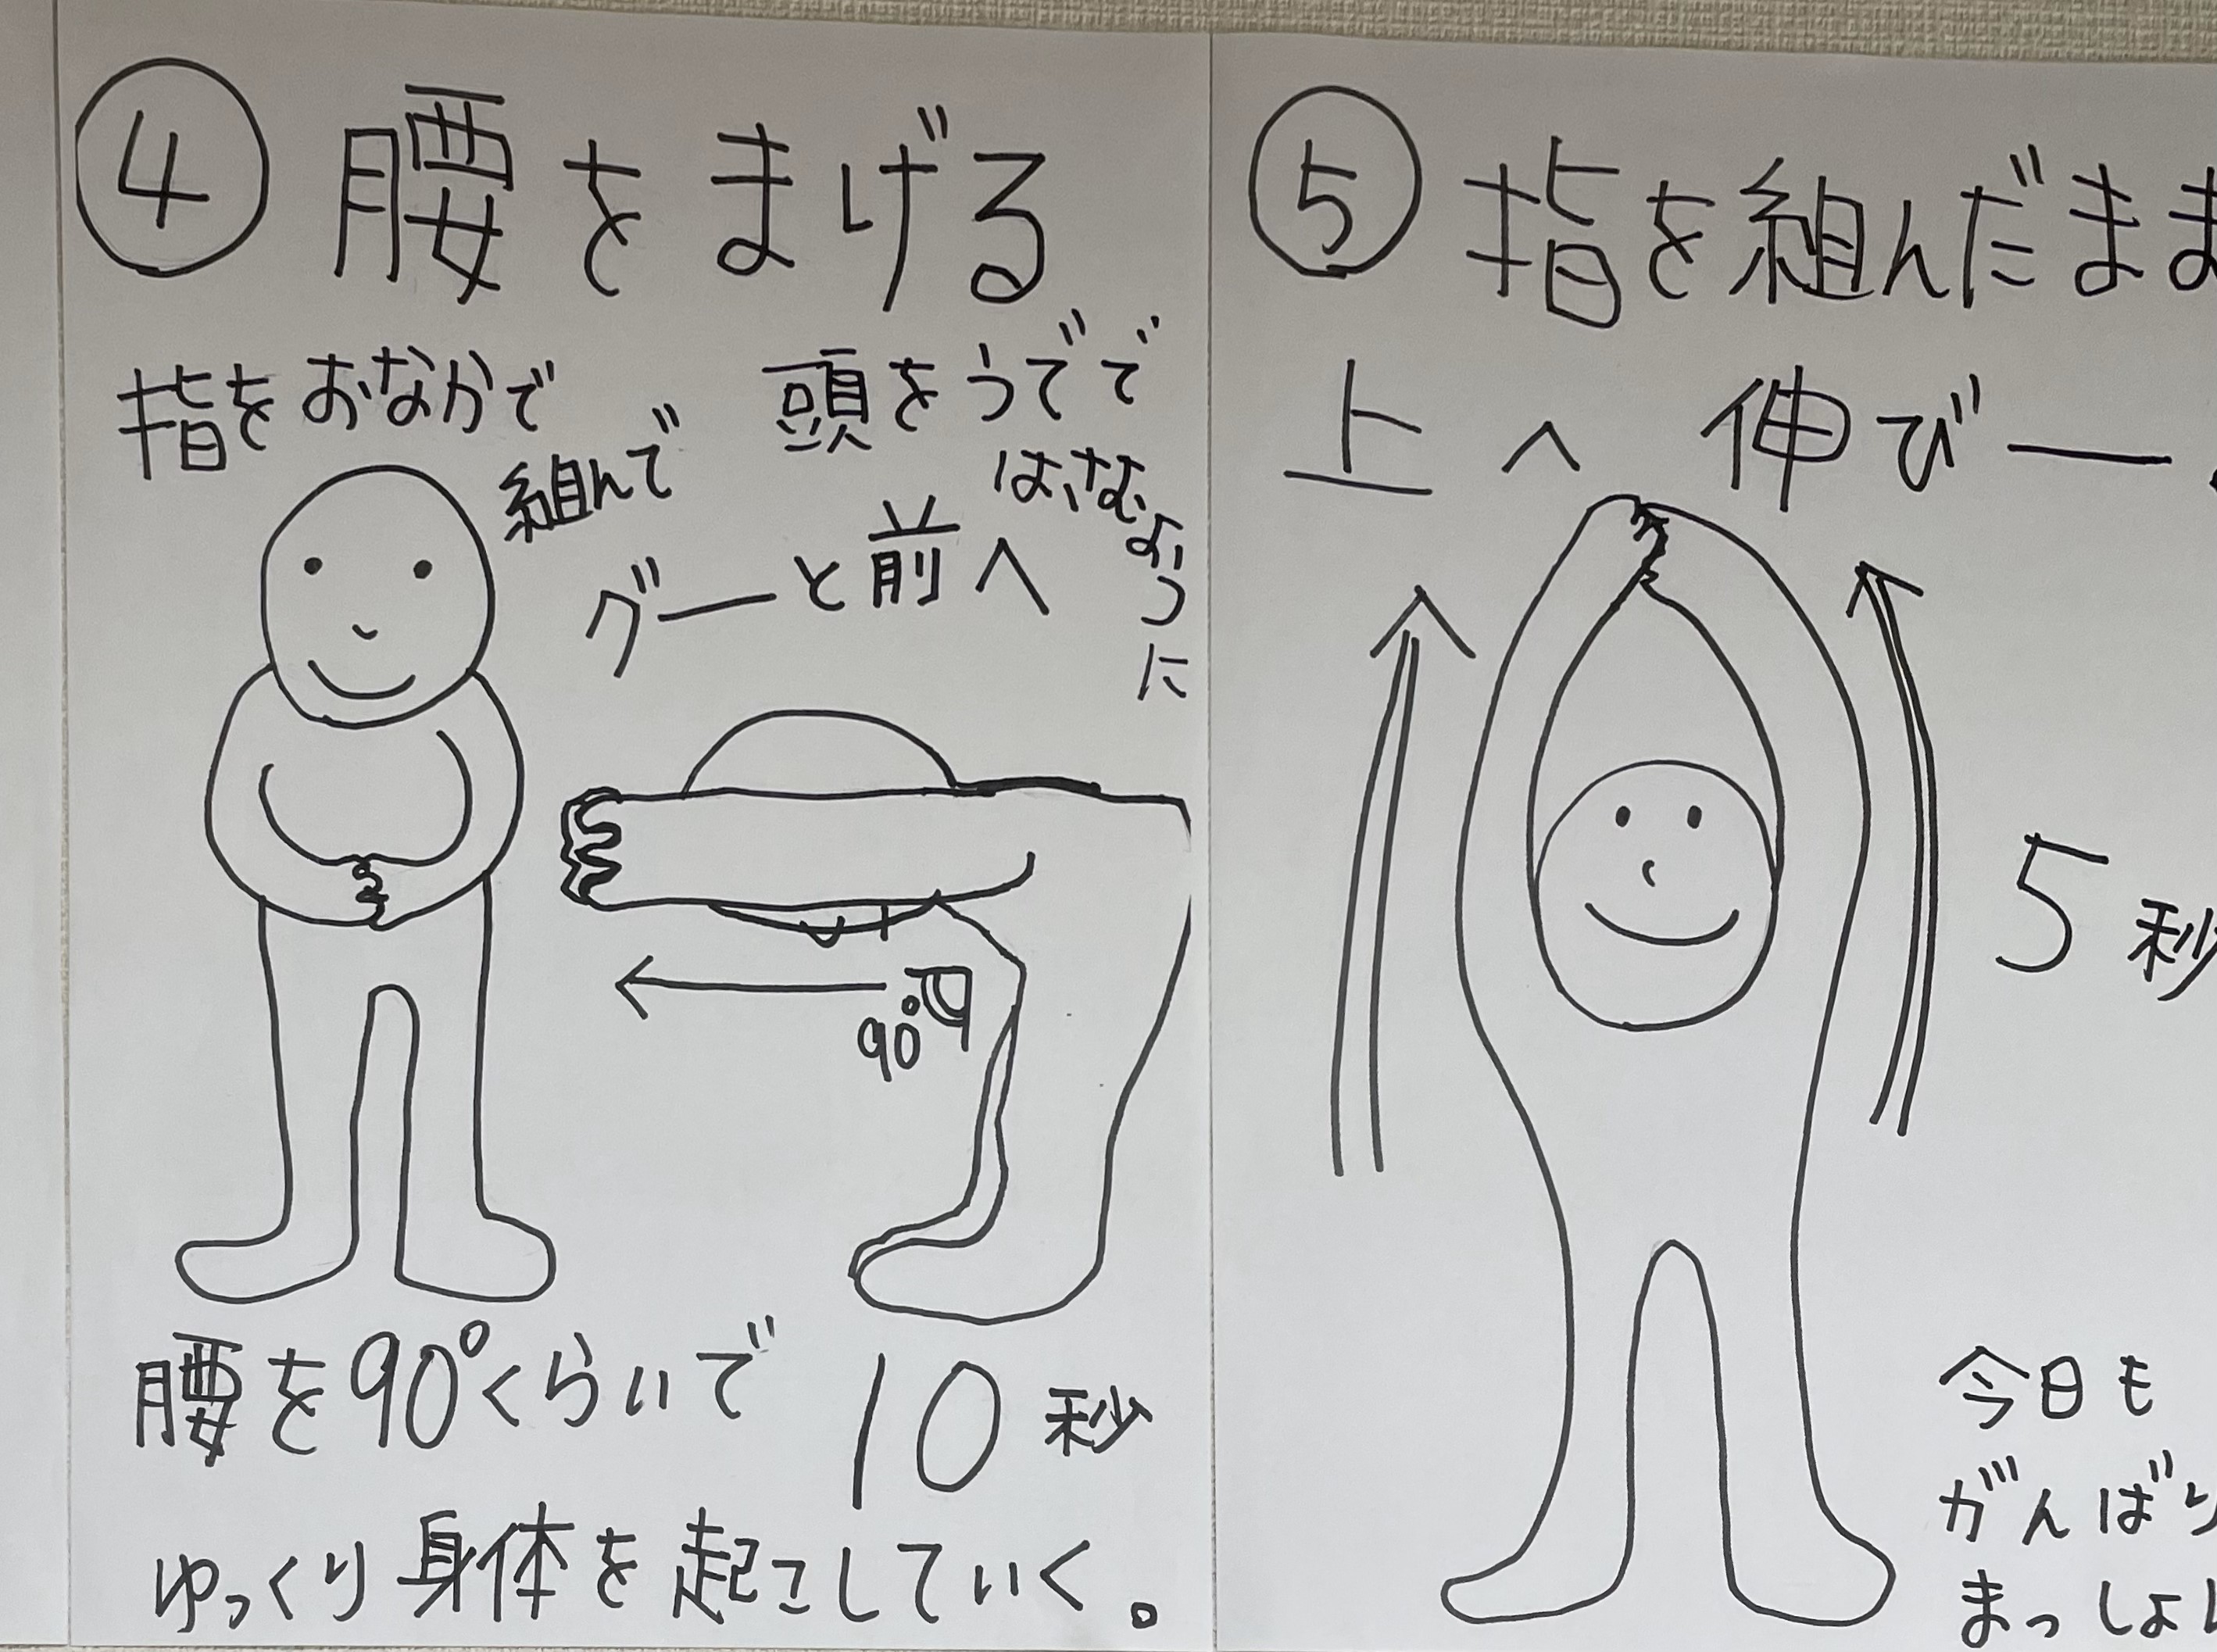 ④ 腰をまげる
指をおなかで
組んで
頭をうでで
はさむ
ように
グーと前へ
90°
腰を90°くらいで 10秒
ゆっくり身体を起こしていく。
⑤ 指を組んだまま
上へ 伸びー
5秒
今日も
がんばり
まっしょ